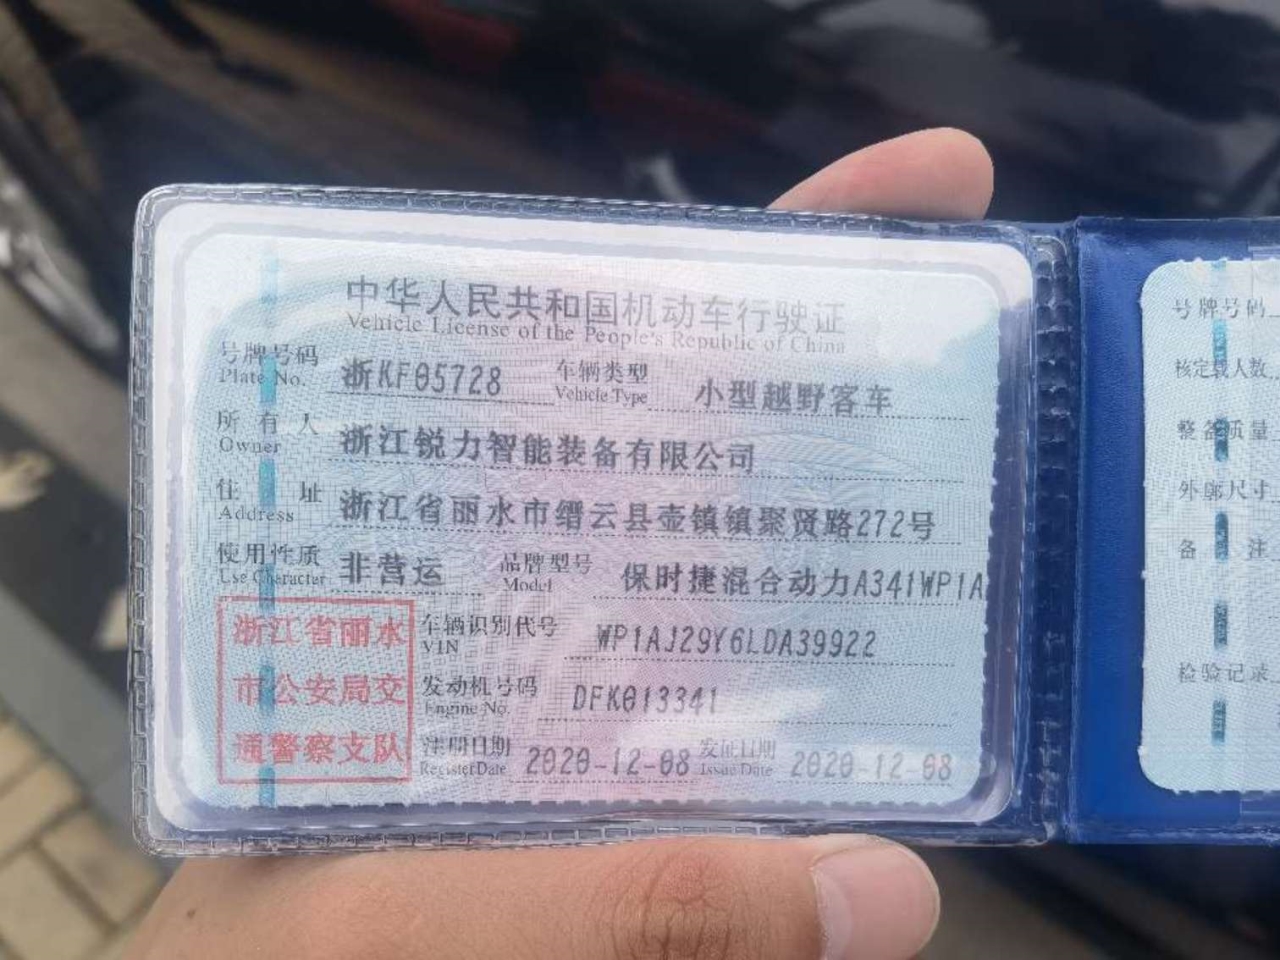 中华人民共和国机动车行驶证
Vehicle License of the People's Republic of China
号牌号码 浙KF05728 车辆类型 小型越野客车
Plate No. Vehicle Type
所有人 浙江锐力智能装备有限公司
Owner
住址 浙江省丽水市缙云县壶镇镇聚贤路272号
Address
使用性质 非营运 品牌型号 保时捷混合动力A341WP1A
Use Character Model
浙江省丽水
市公安局交
通警察支队
车辆识别代号 WP1AJ29Y6LDA39922
VIN
发动机号码 DFK013341
Engine No.
注册日期 2020-12-08 发证日期 2020-12-08
Register Date Issue Date
号牌号码
核定载人数
整备质量
外廓尺寸
备注
检验记录